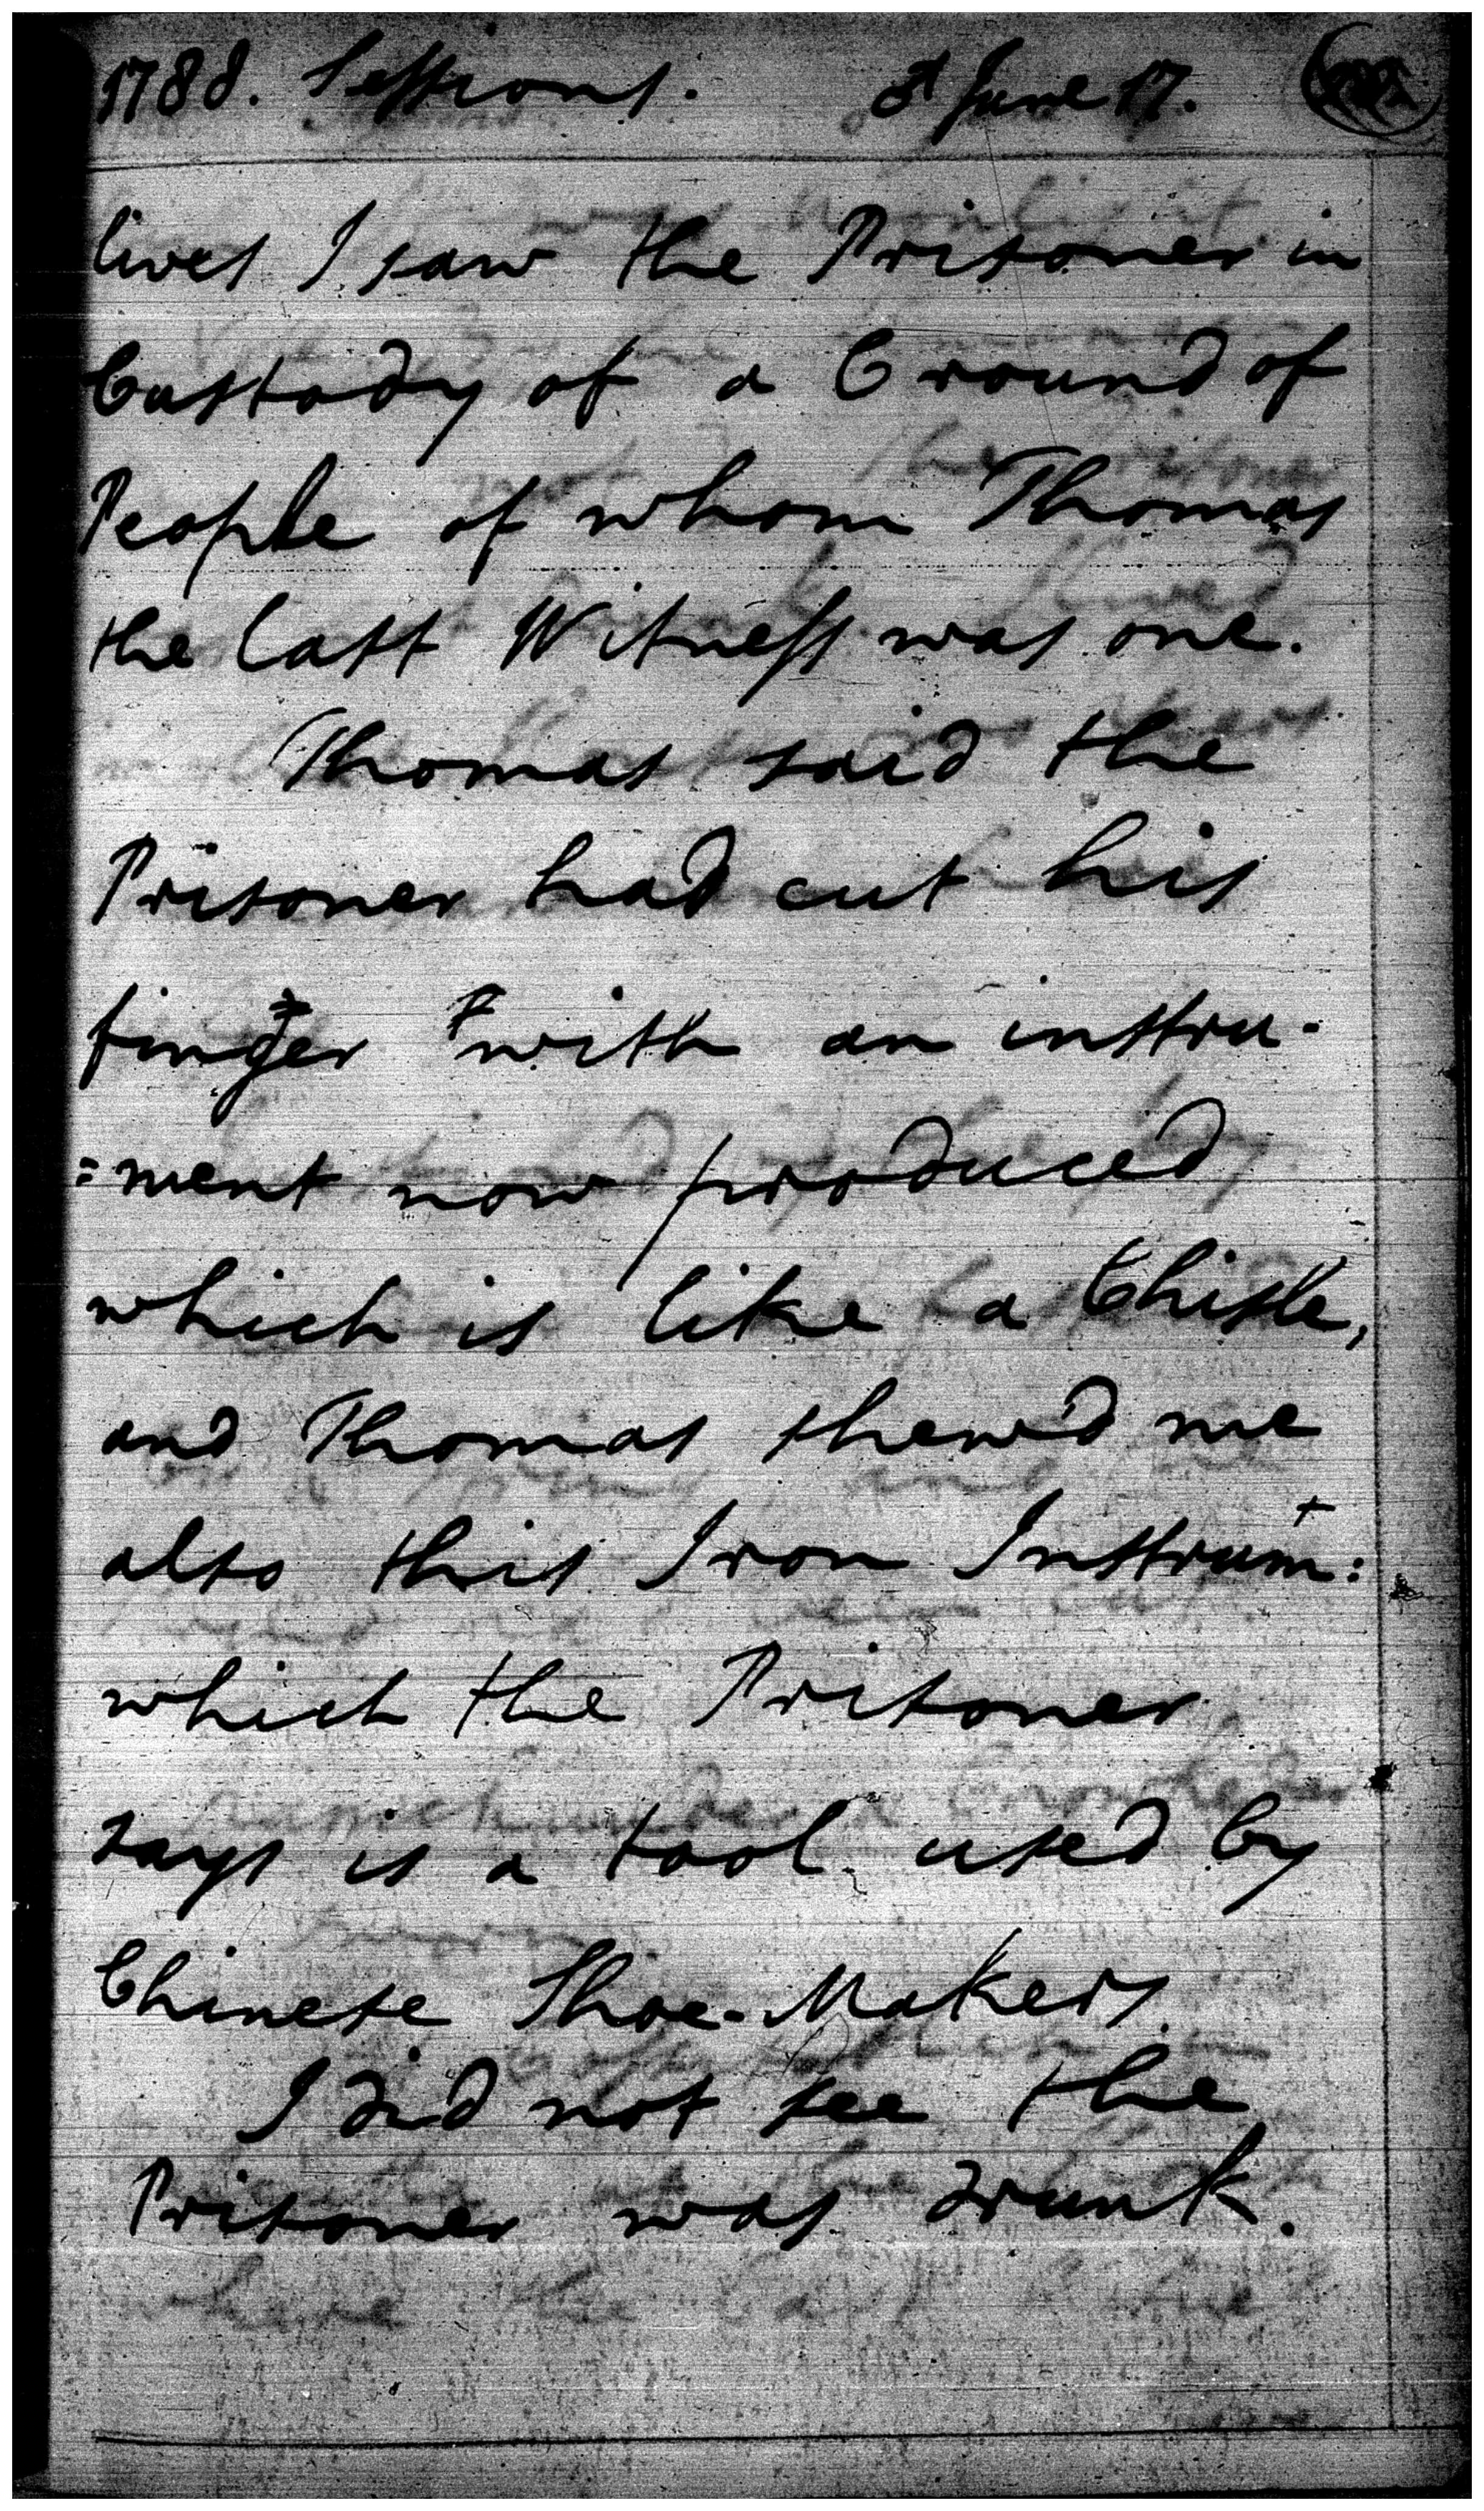 1788. Sessions. ♂ June 17.
lives I saw the Prisoner in
Custody of a Cround of
People of whom Thomas
the last Witness was one.
Thomas said the
Prisoner had cut his
finger with an instru-
=ment now produced
which is like a Chisle,
and Thomas shewd me
also this Iron Instrumt:
which the Prisoner
says is a tool used by
Chinese Shoe-Makers.
I did not see the
Prisoner was drunk.